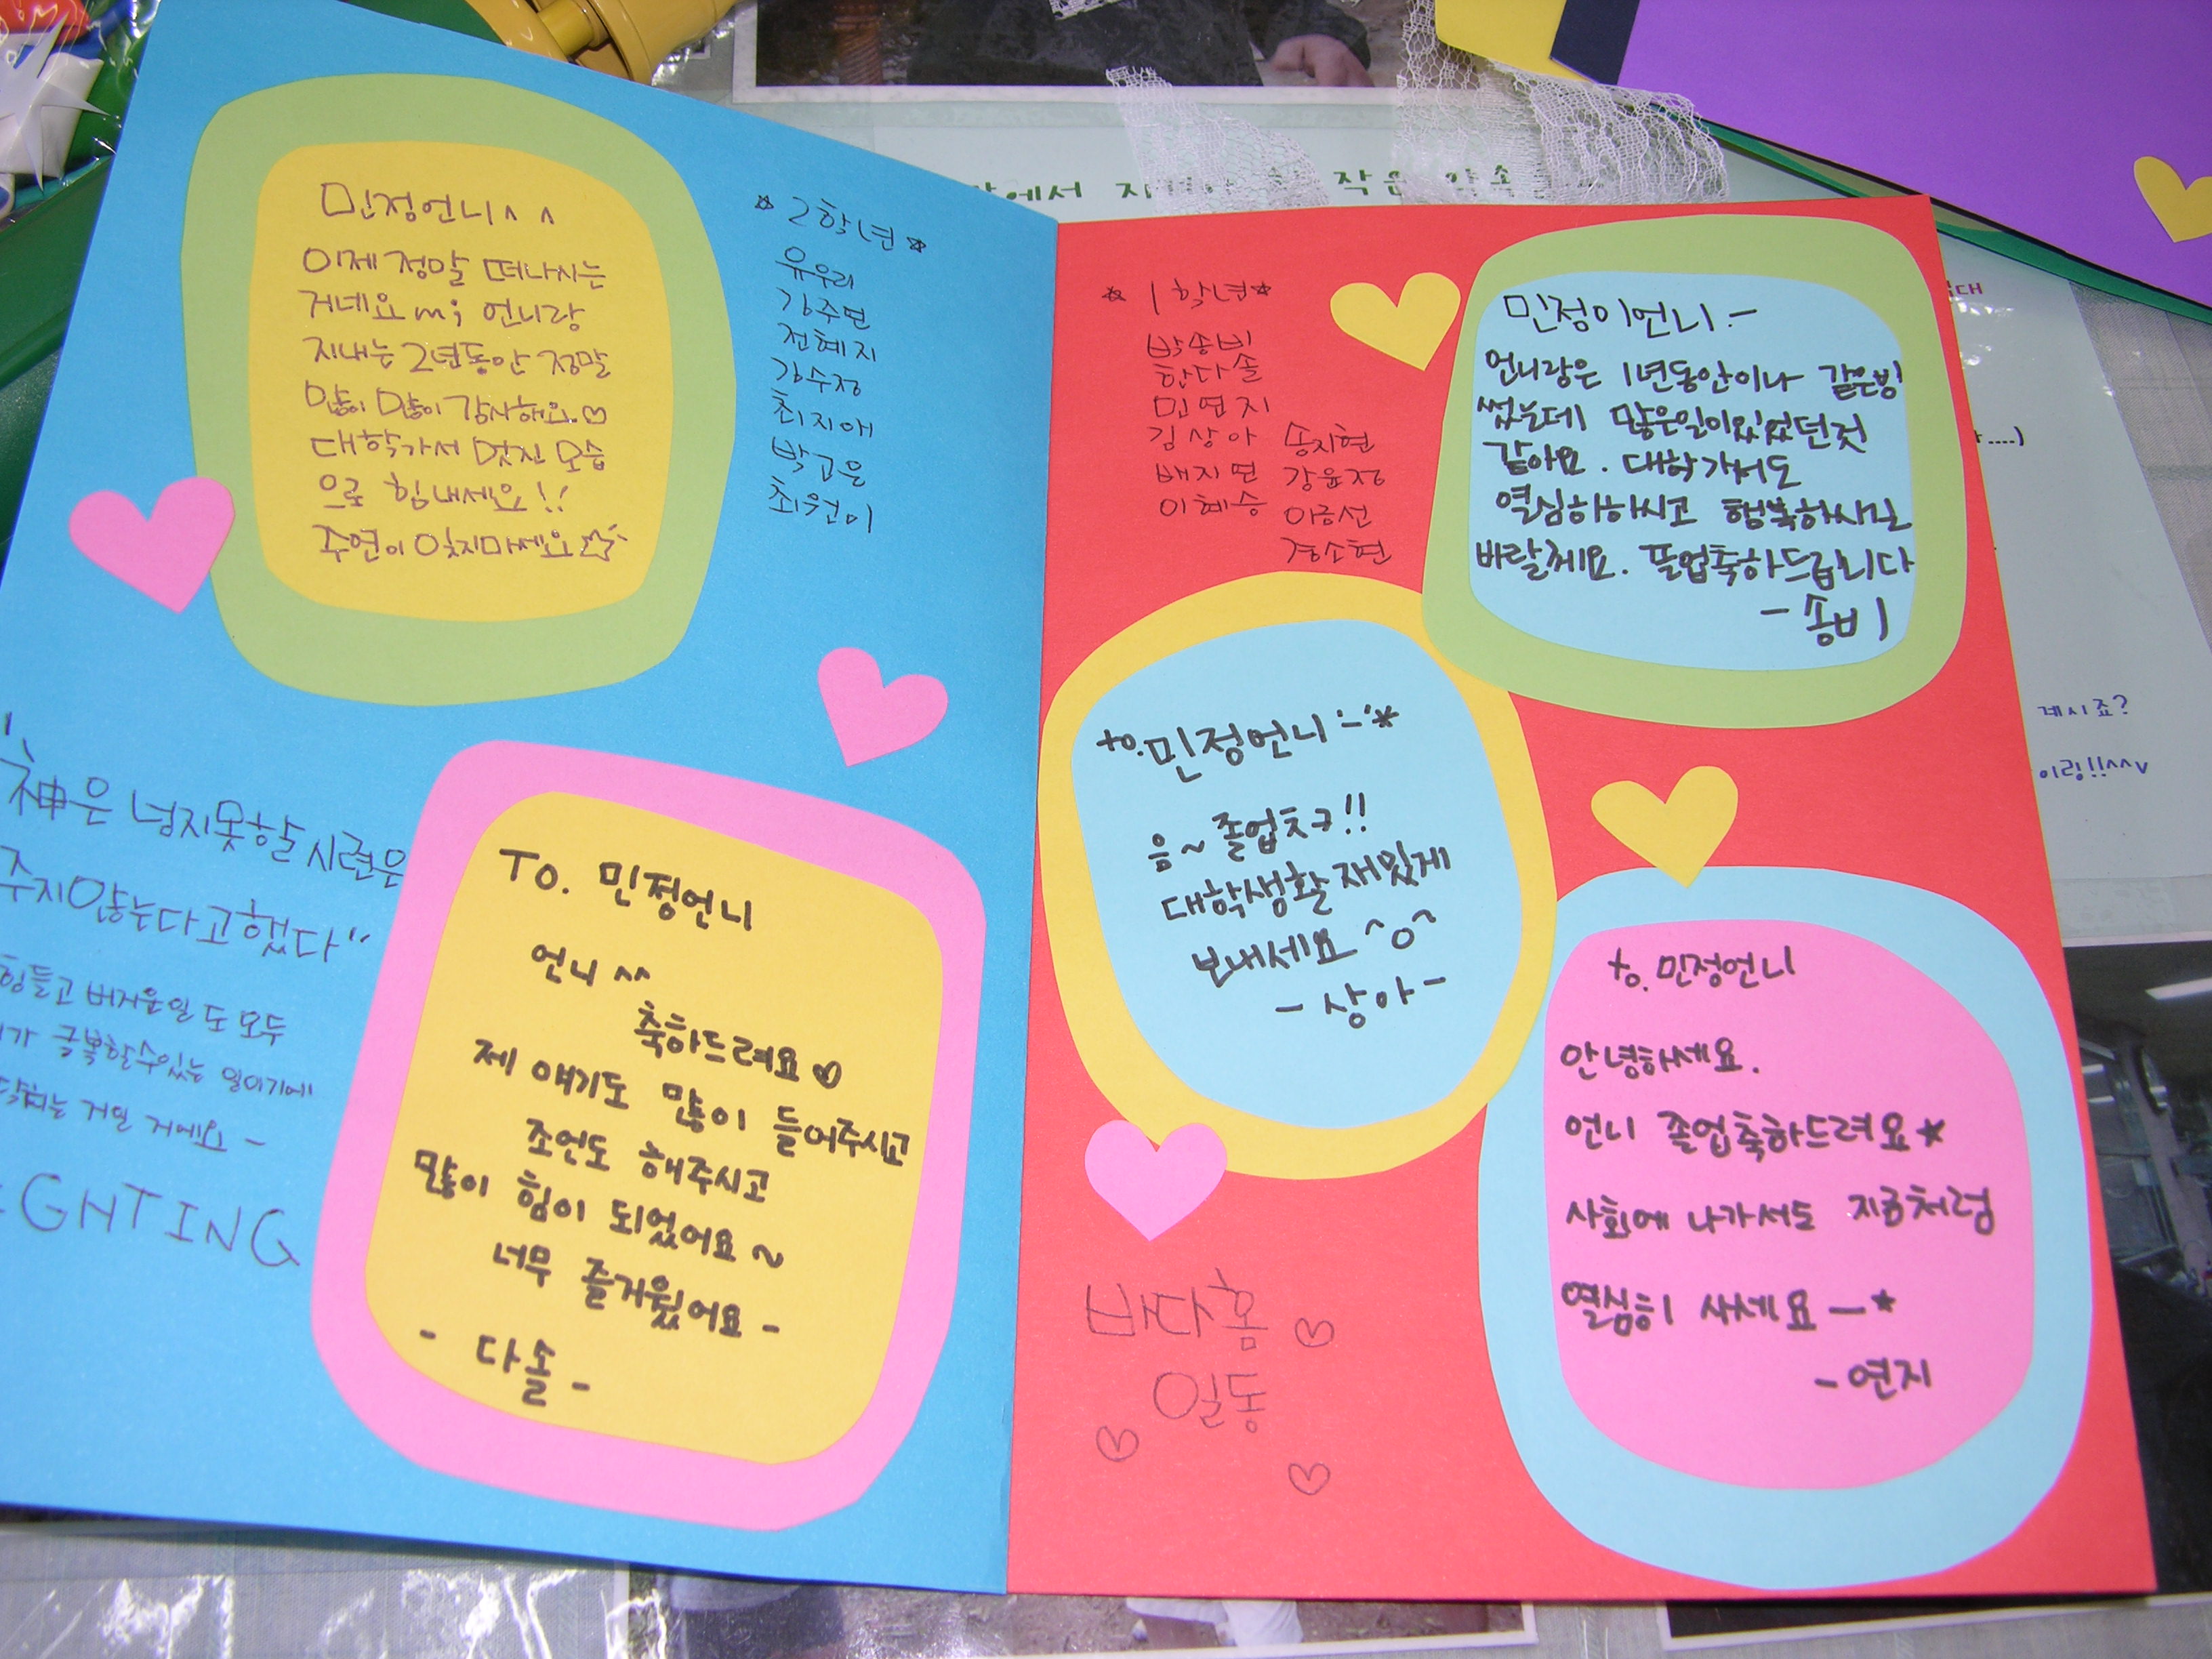 민정언니^ ^
이제 정말 떠나시는
거네요 m; 언니랑
지내는 2년동안 정말
많이 많이 감사해요.♡
대학가서 멋진 모습
으로 힘내세요!!
주연이 잊지마세요☆
☆2학년☆
유우리
강주연
전혜지
강수정
최지애
박고은
최원이
"神은 넘지못할 시련은
주지않는다고했다"
힘들고 버거운일도 모두
가 극복할수있는 일이기에
닥쳐는 거일 거에요 -
GHTING
To. 민정언니
언니 ^^
축하드려요♡
제 얘기도 많이 들어주시고
조언도 해주시고
많이 힘이 되었어요~
너무 즐거웠어요-
- 다솔 -
☆1학년☆
박송비
한다솔
민연지
김상아 송지현
배지연 강윤정
이혜승 이금선
경소현
민정이언니.-
언니랑은 1년동안이나 같은방
썼는데 많은일이있었던것
같아요. 대학가서도
열심히하시고 행복하시길
바랄께요. 졸업축하드립니다
- 송비
to. 민정언니 '-'*
음~ 졸업ㅊㅋ!!
대학생활 재밌게
보내세요 ^o^
- 상아 -
to. 민정언니
안녕하세요.
언니 졸업축하드려요★
사회에 나가서도 지금처럼
열심히 사세요 —*
- 연지
바다홈♡
일동
♡ ♡
계시죠?
이랑!!^^v